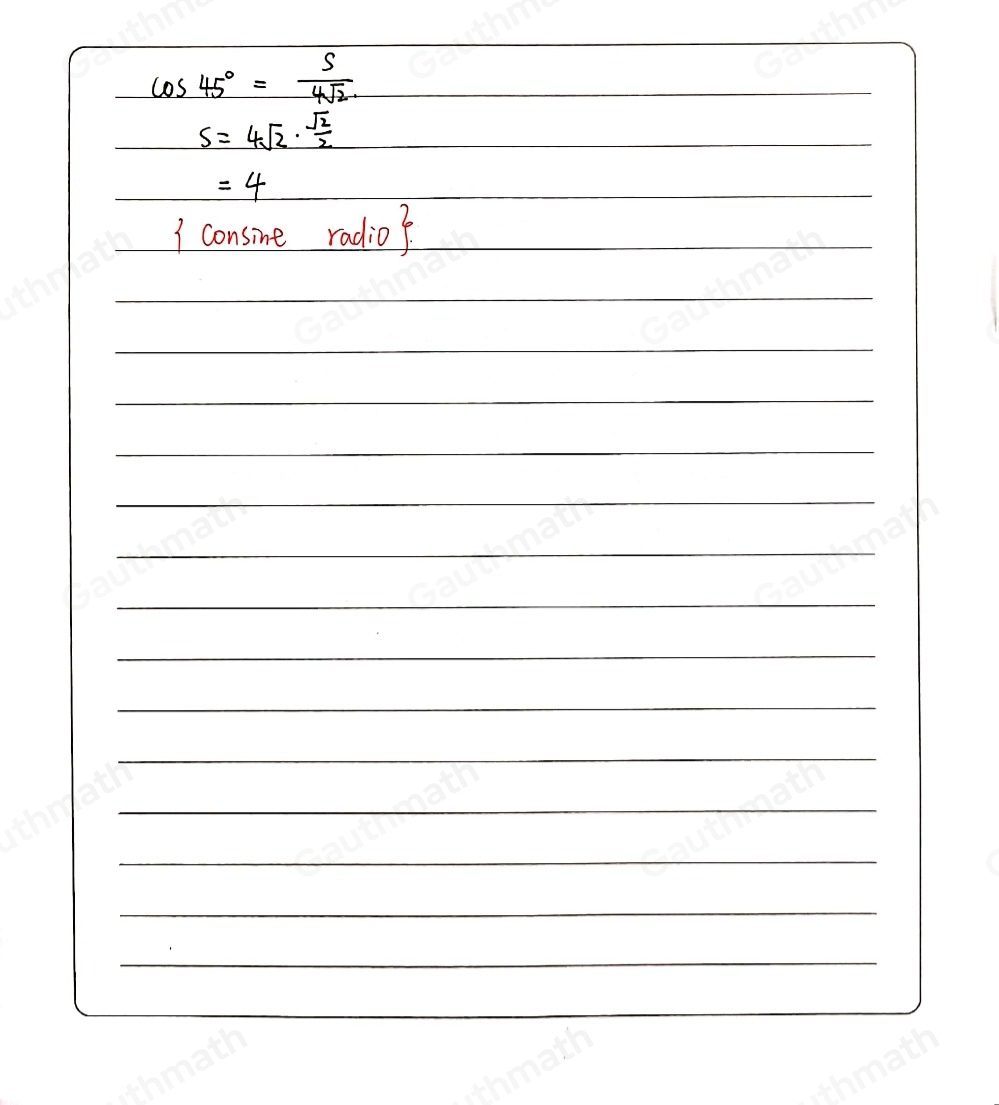 cos 45° = S/4√2.
S = 4√2 · √2/2
= 4
{ consine radio }.
Gauthmath